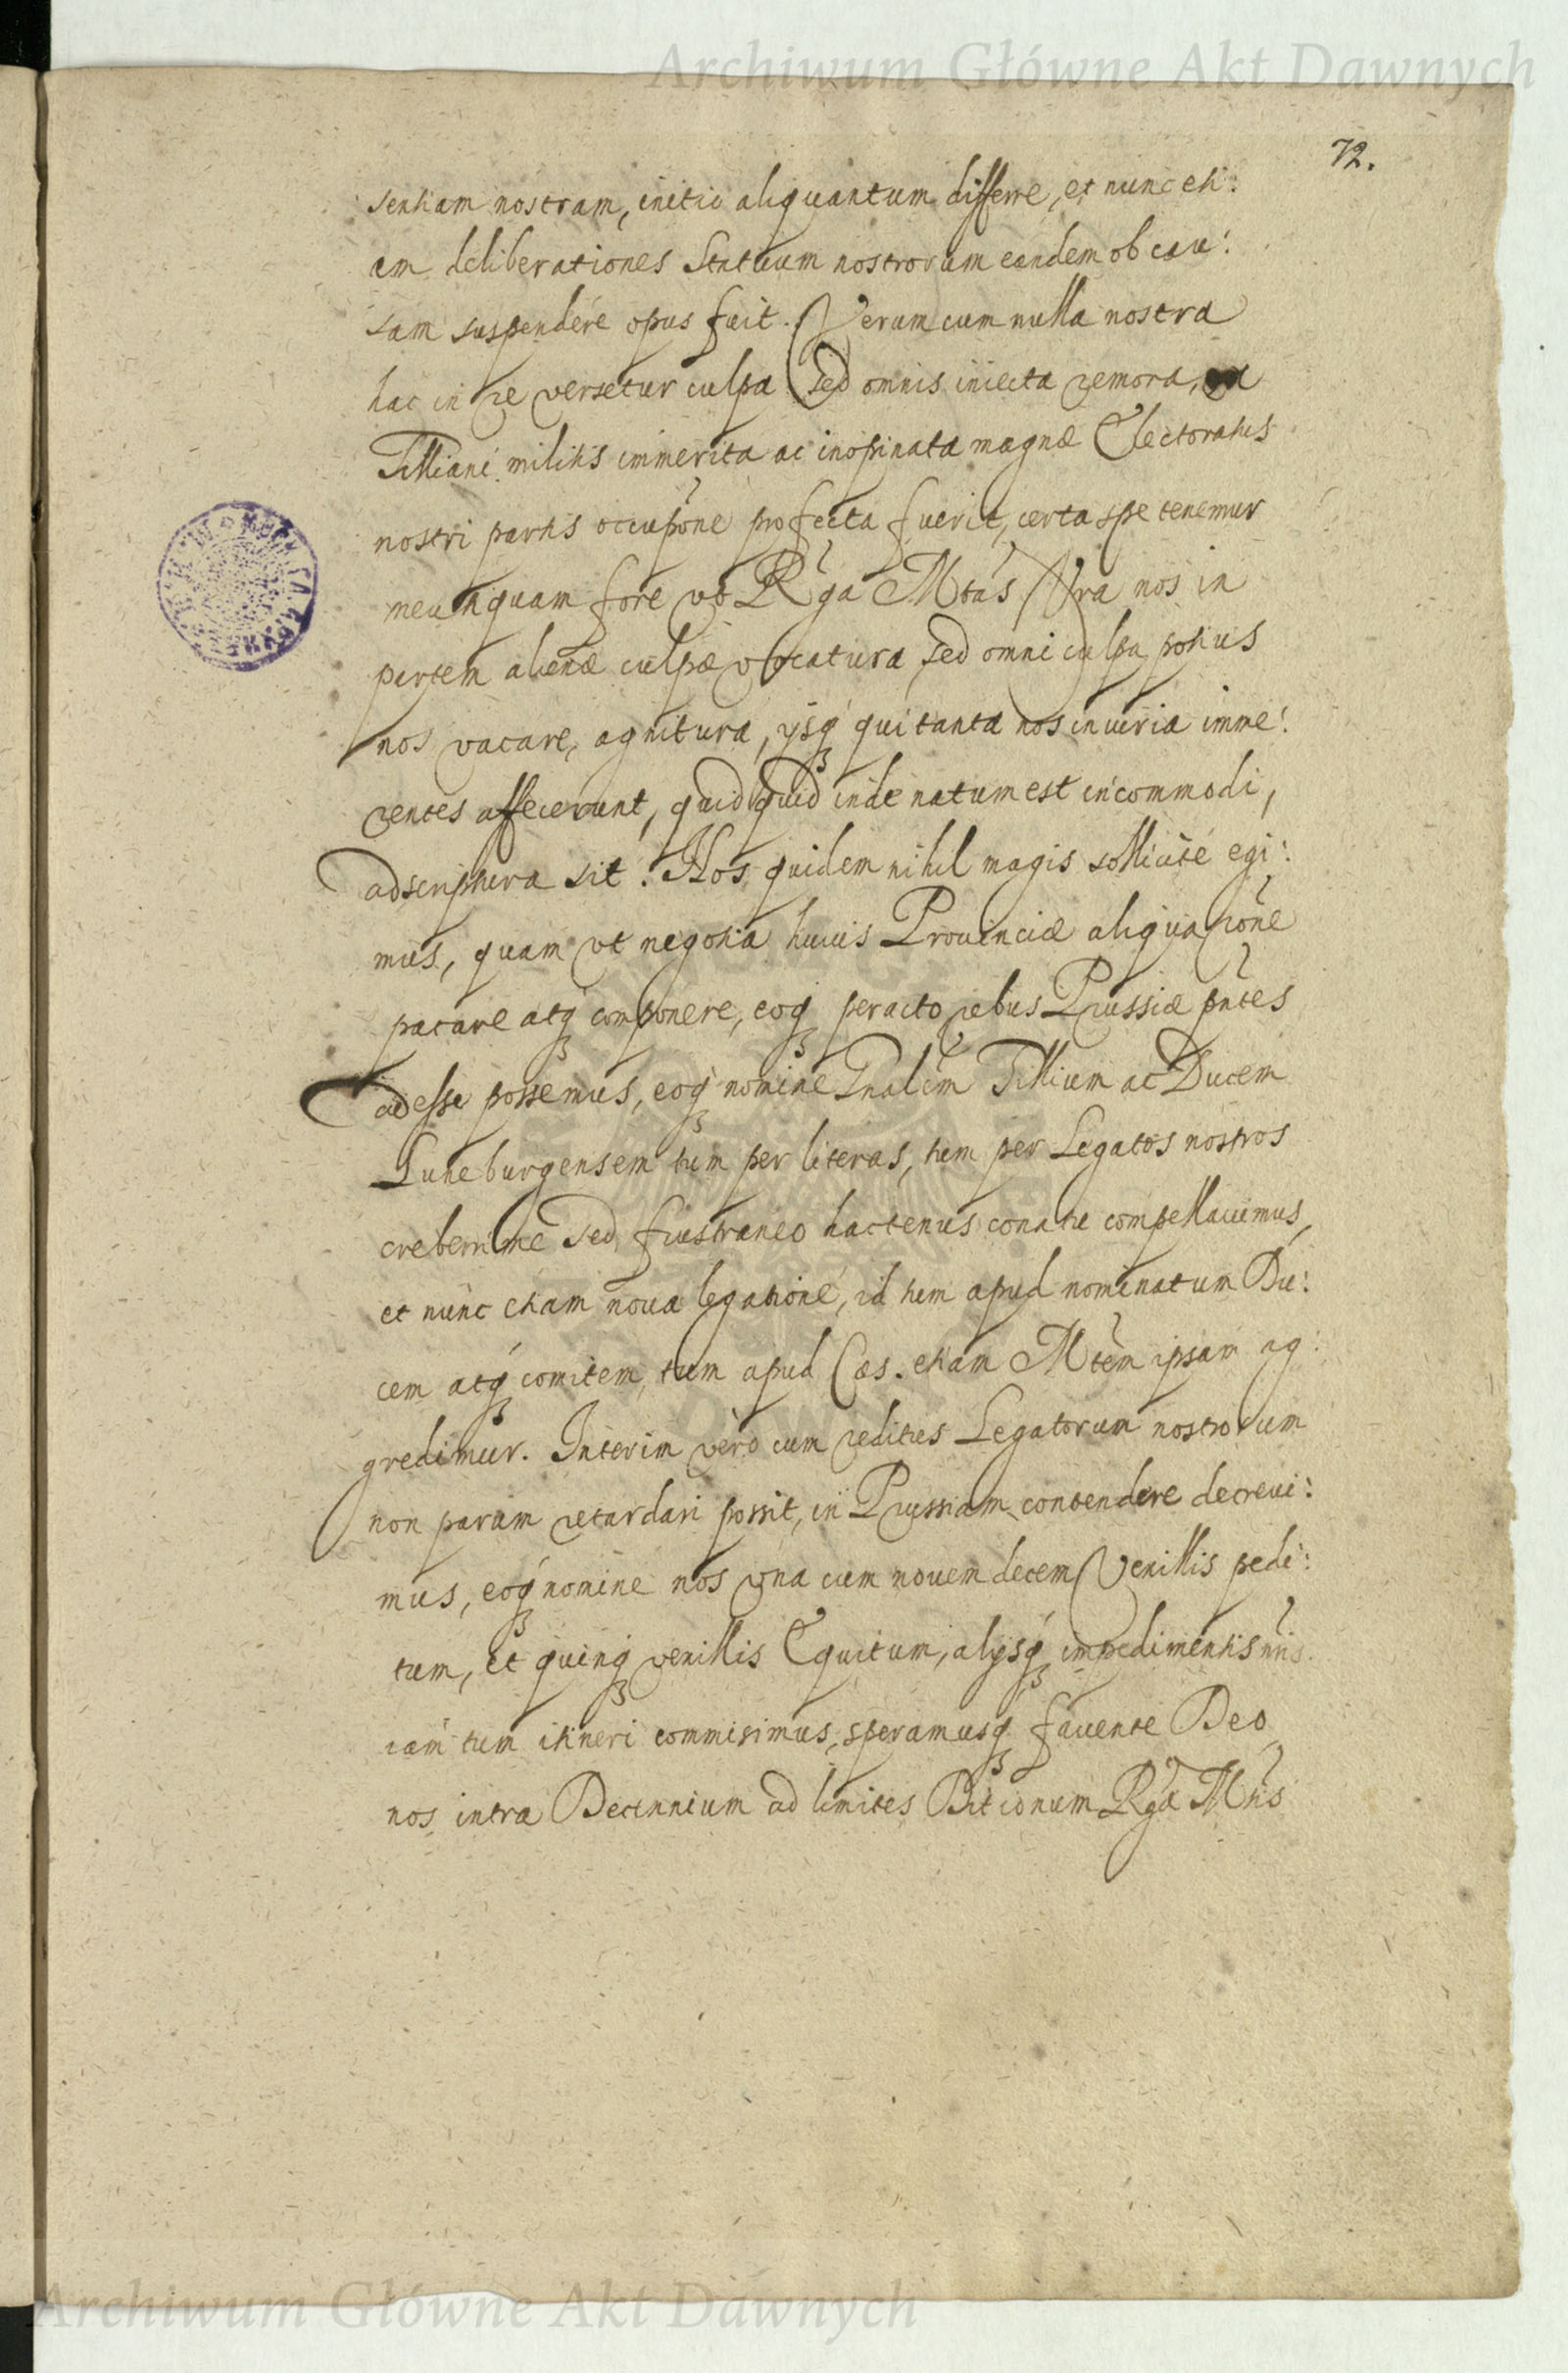 Archiwum Główne Akt Dawnych
72.
sentiam nostram, initio aliquantum differre, et nunc eti:
am deliberationes Statuum nostrorum eandem ob cau:
sam suspendere opus fuit. Verum cum nulla nostra
hac in re versetur culpa sed omnis iniecta remora, a
Tilliani militis immerita ac inopinata magnæ Electoratus
nostri partis occupõne profecta fuerit, certa spe tenemur
neunquam fore vt Rga Mtas Vra nos in
partem alienæ culpæ vocatura, sed omni culpa potius
nos vacare, agnitura, ijsq́ qui tanta nos iniuria imme:
rentes affecerunt, quidquid inde natum est incommodi,
adscriptura sit. Nos quidem nihil magis sollicité egi:
mus, quam vt negotia huius Prouinciæ aliqua rõne
pacare atq́ componere, eoq́ peracto rebus Prussiæ pñtes
adesse possemus, eoq́ nomine Gnalem Tillium ac Ducem
Luneburgensem tum per literas, tum per Legatos nostros
creberrime sed frustraneo hactenus conatu compellauimus,
et nunc etiam noua legatione, id tum apud nominatum Du:
cem atq́ comitem, tum apud Cæs. etiam Mtem ipsam ag:
gredimur. Interim vèro cum reditus Legatorum nostrorum
non parum retardari possit, in Prussiam contendere decreui:
mus, eoq́ nomine nos vna cum nouem decem Vexillis pedi:
tum, et quinq́ vexillis Equitum, alijsq́ impedimentis nris
iam tum itineri commisimus, speramusq́ fauente Deo
nos intra Decennium ad limites Ditionum Rgæ Mtis
Archiwum Główne Akt Dawnych